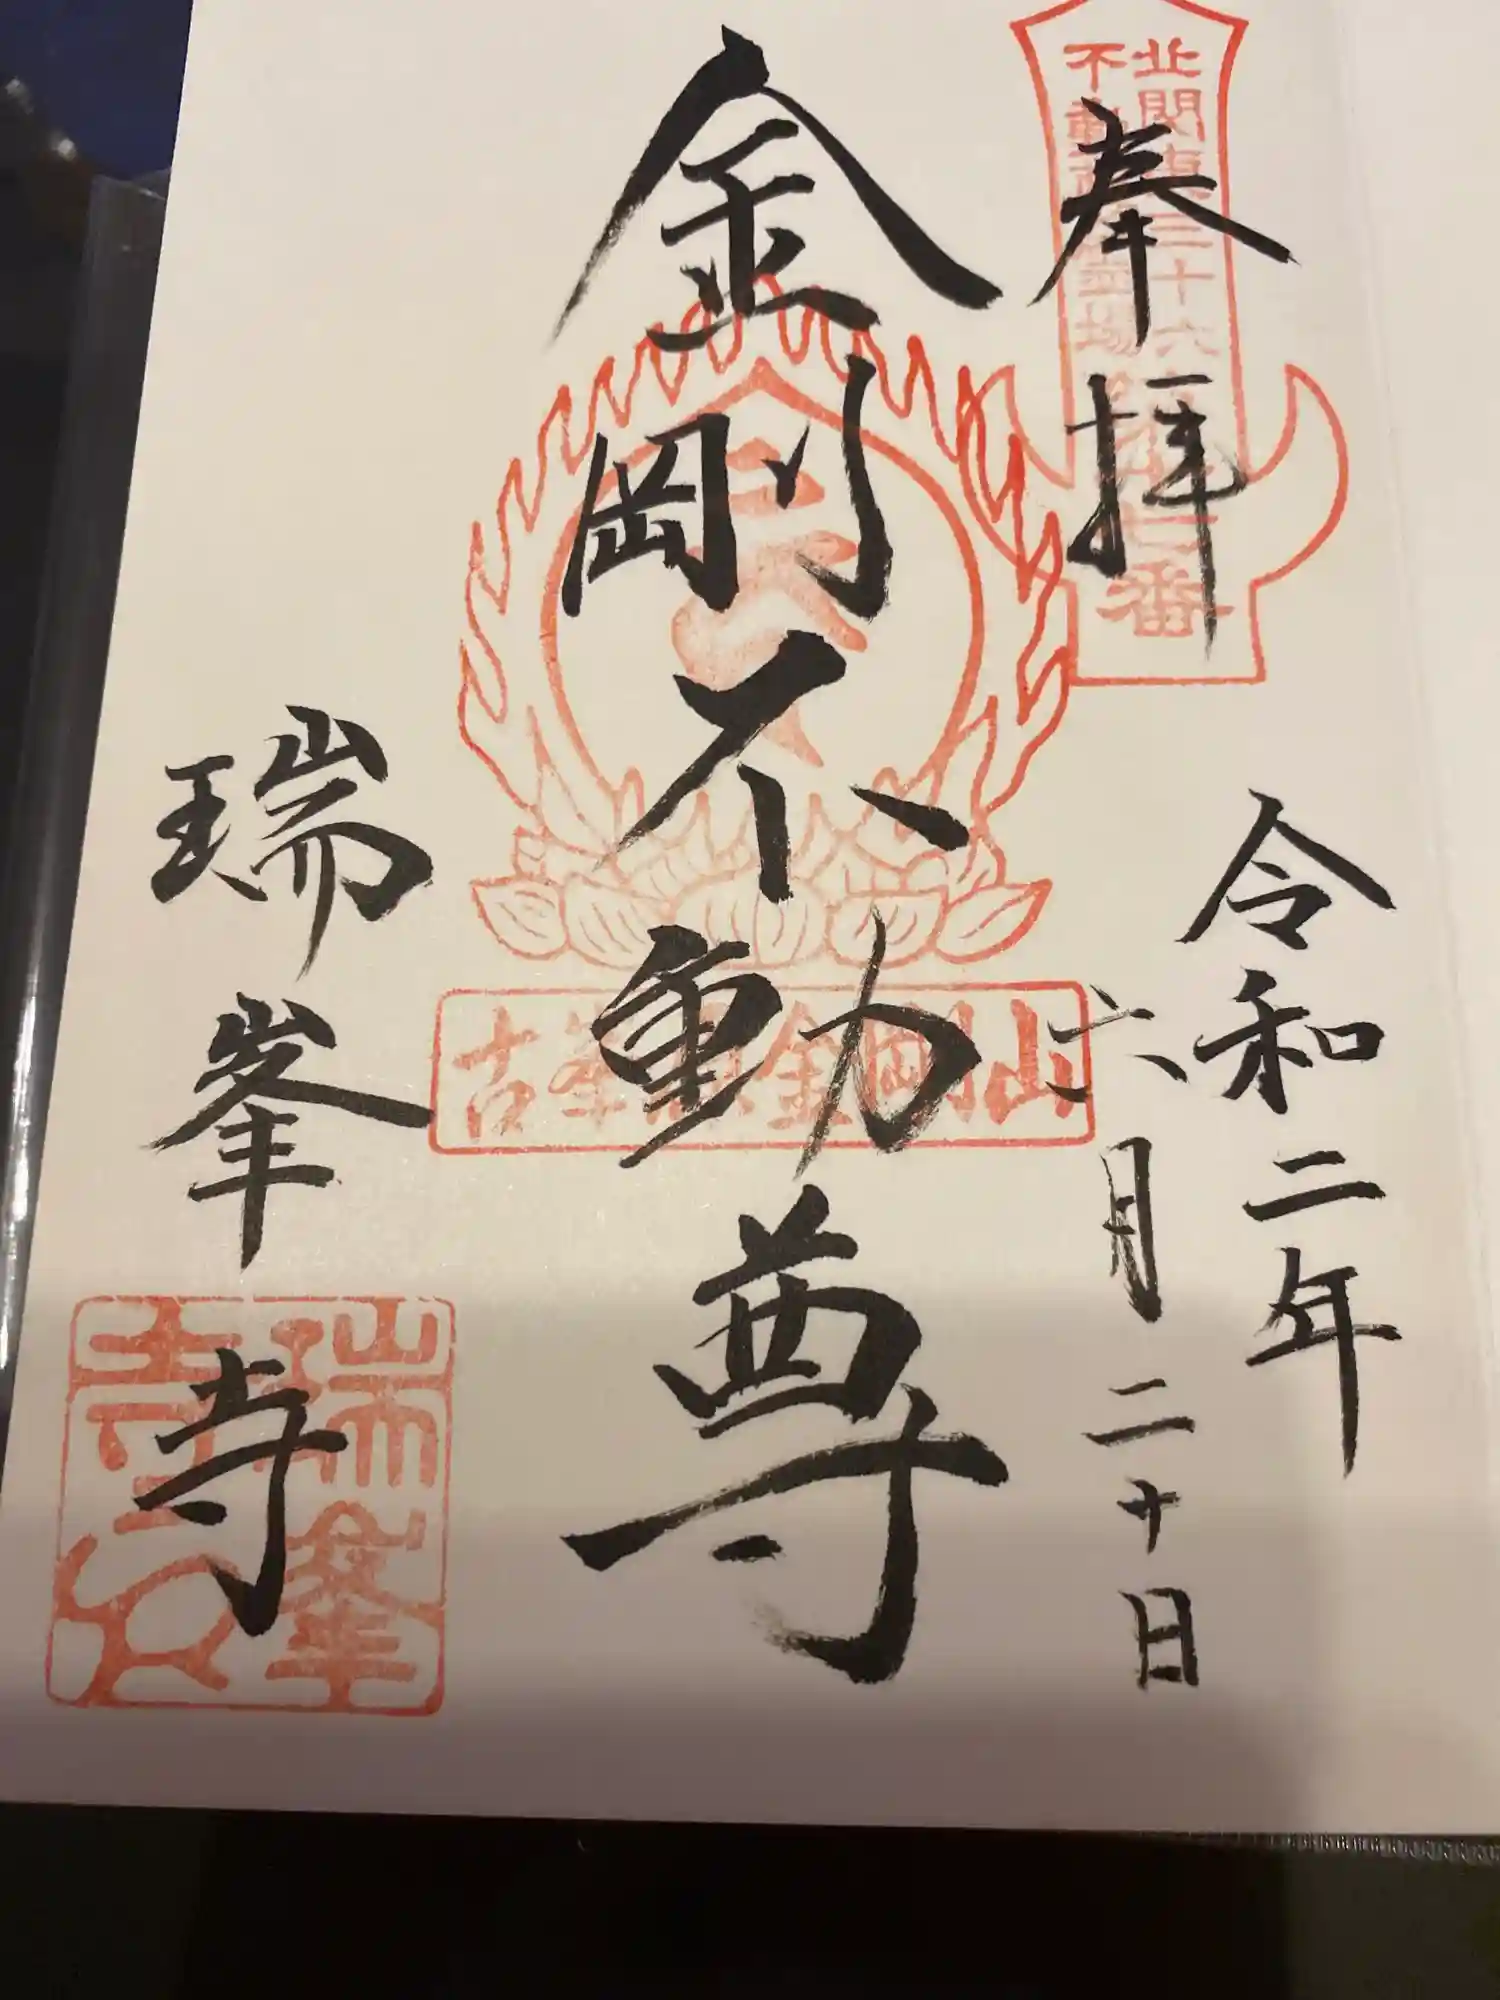 奉拝
令和二年
六月二十日
金剛不動尊
瑞峯寺
北関東三十六
不動尊霊場
番
金剛山
瑞峯
寺